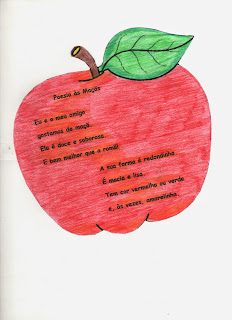 Poesia da Maçãs
Eu e o meu amigo
gostamos de maçã.
Ela é doce e saborosa
E bem melhor que a romã!
A sua forma é redondinha
É macia e lisa.
Tem cor vermelha ou verde
e, às vezes, amarelinha.